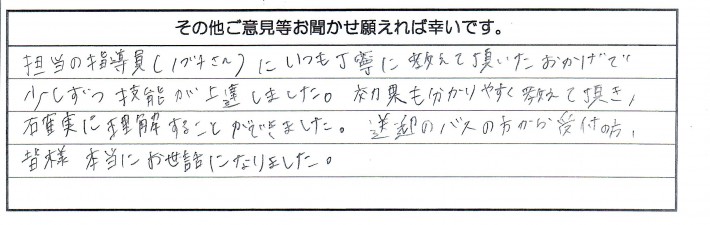 その他ご意見等お聞かせ願えれば幸いです。
担当の指導員(ノグチさん)にいつも丁寧に教えて頂いたおかげで
少しずつ技能が上達しました。効果も分かりやすく教えて頂き,
確実に理解することができました。送迎のバスの方から受付の方,
皆様 本当にお世話になりました。